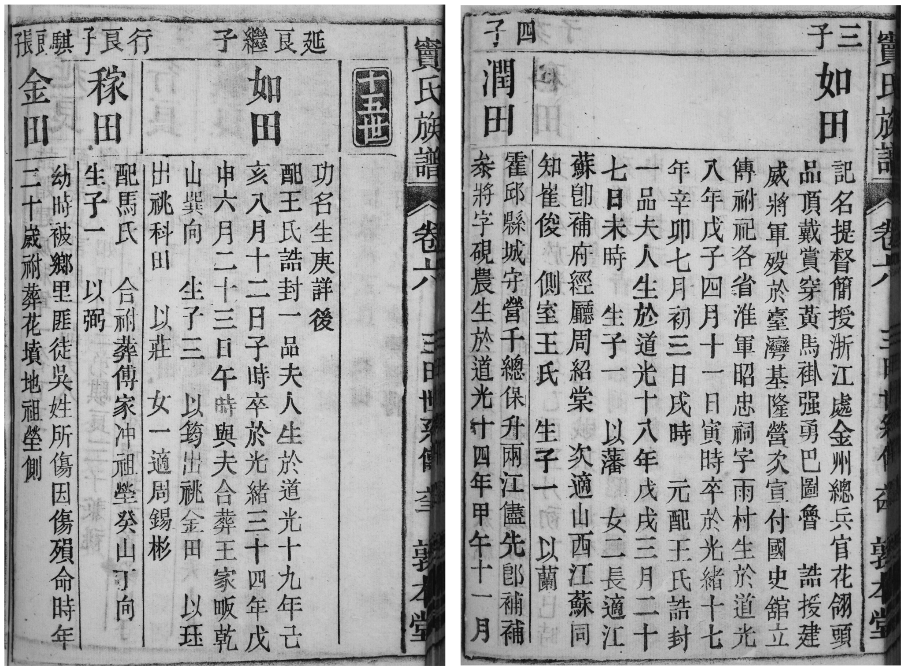 竇氏族譜 卷六 三田世系傳 敦本堂
三子
如田
記名提督簡授浙江處金州總兵官花翎頭
品頂戴賞穿黃馬褂强勇巴圖魯 誥授建
威將軍歿於臺灣基隆營次宣付國史舘立
傳祔祀各省淮軍昭忠祠字雨村生於道光
八年戊子四月十一日寅時卒於光緒十七
年辛卯七月初三日戌時 元配王氏誥封
一品夫人生於道光十八年戊戌三月二十
七日未時 生子一 以藩 女二長適江
蘇卽補府經廳周紹棠 次適山西江蘇同
知崔俊 側室王氏 生子一 以蘭
四子
潤田
霍邱縣城守營千總保升兩江儘先卽補補
叅將字硯農生於道光十四年甲午十一月
竇氏族譜 卷六 三田世系傳 敦本堂
十五世
延良繼子
如田
功名生庚詳後
配王氏誥封一品夫人生於道光十九年己
亥八月十二日子時卒於光緒三十四年戊
申六月二十三日午時與夫合葬王家畈乾
山巽向 生子三 以筠出祧金田 以珏
出祧科田 以莊 女一適周錫彬
行良子
稼田
配馬氏 合祔葬傅家冲祖塋癸山丁向
生子一 以弼
騏良長子
金田
幼時被鄉里匪徒吳姓所傷因傷殞命時年
二十歲祔葬花墳地祖塋側